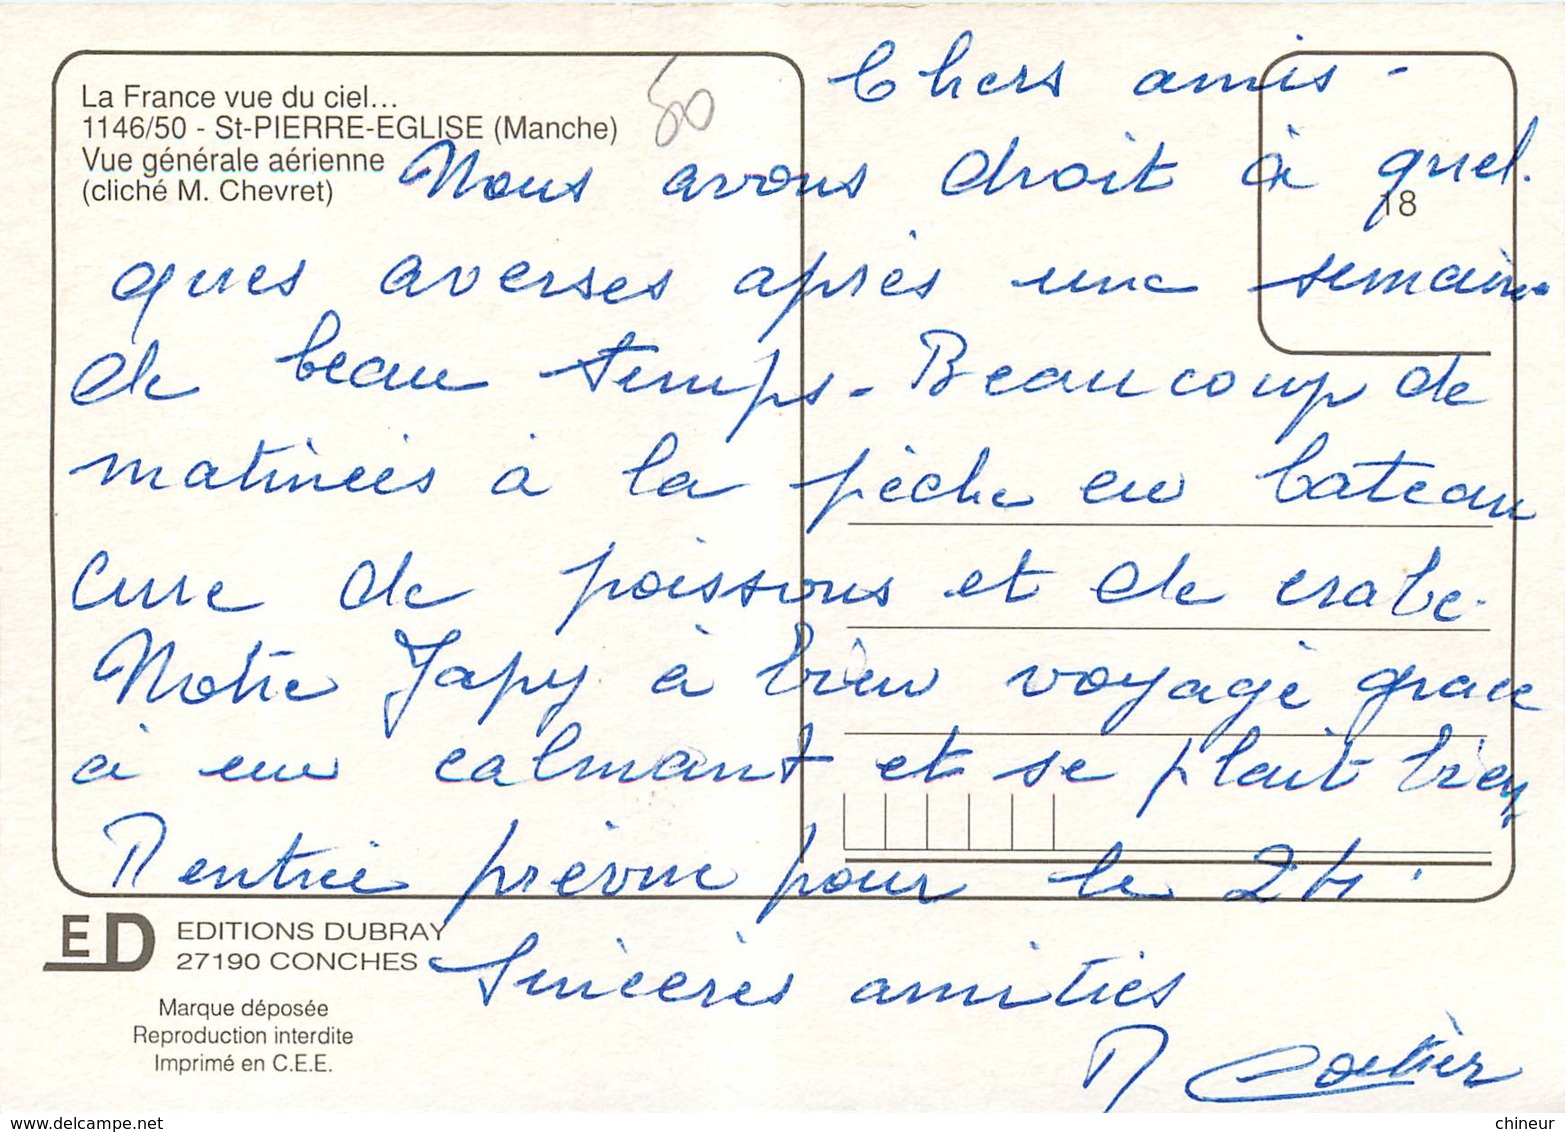 La France vue du ciel...
1146/50 - St-PIERRE-EGLISE (Manche)
Vue générale aérienne
(cliché M. Chevret)
50
18
Chers amis -
Nous avons droit à quel.
ques averses après une semaine
de beau temps - Beaucoup de
matinées à la pêche en bateau
cure de poissons et de crabe.
Notre Japy à bien voyagé grace
à un calmant et se plait bien
Rentrée prévue pour le 24.
Sincères amitiés
R
ED EDITIONS DUBRAY
27190 CONCHES
Marque déposée
Reproduction interdite
Imprimé en C.E.E.
www.delcampe.net
chineur